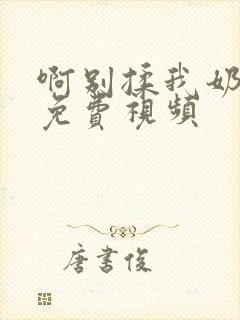 啊别揉我奶
免費視頻
唐書俊